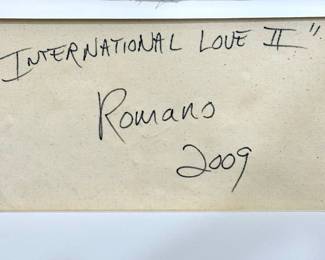 INTERNATIONAL LOVE II"
Romano
2009